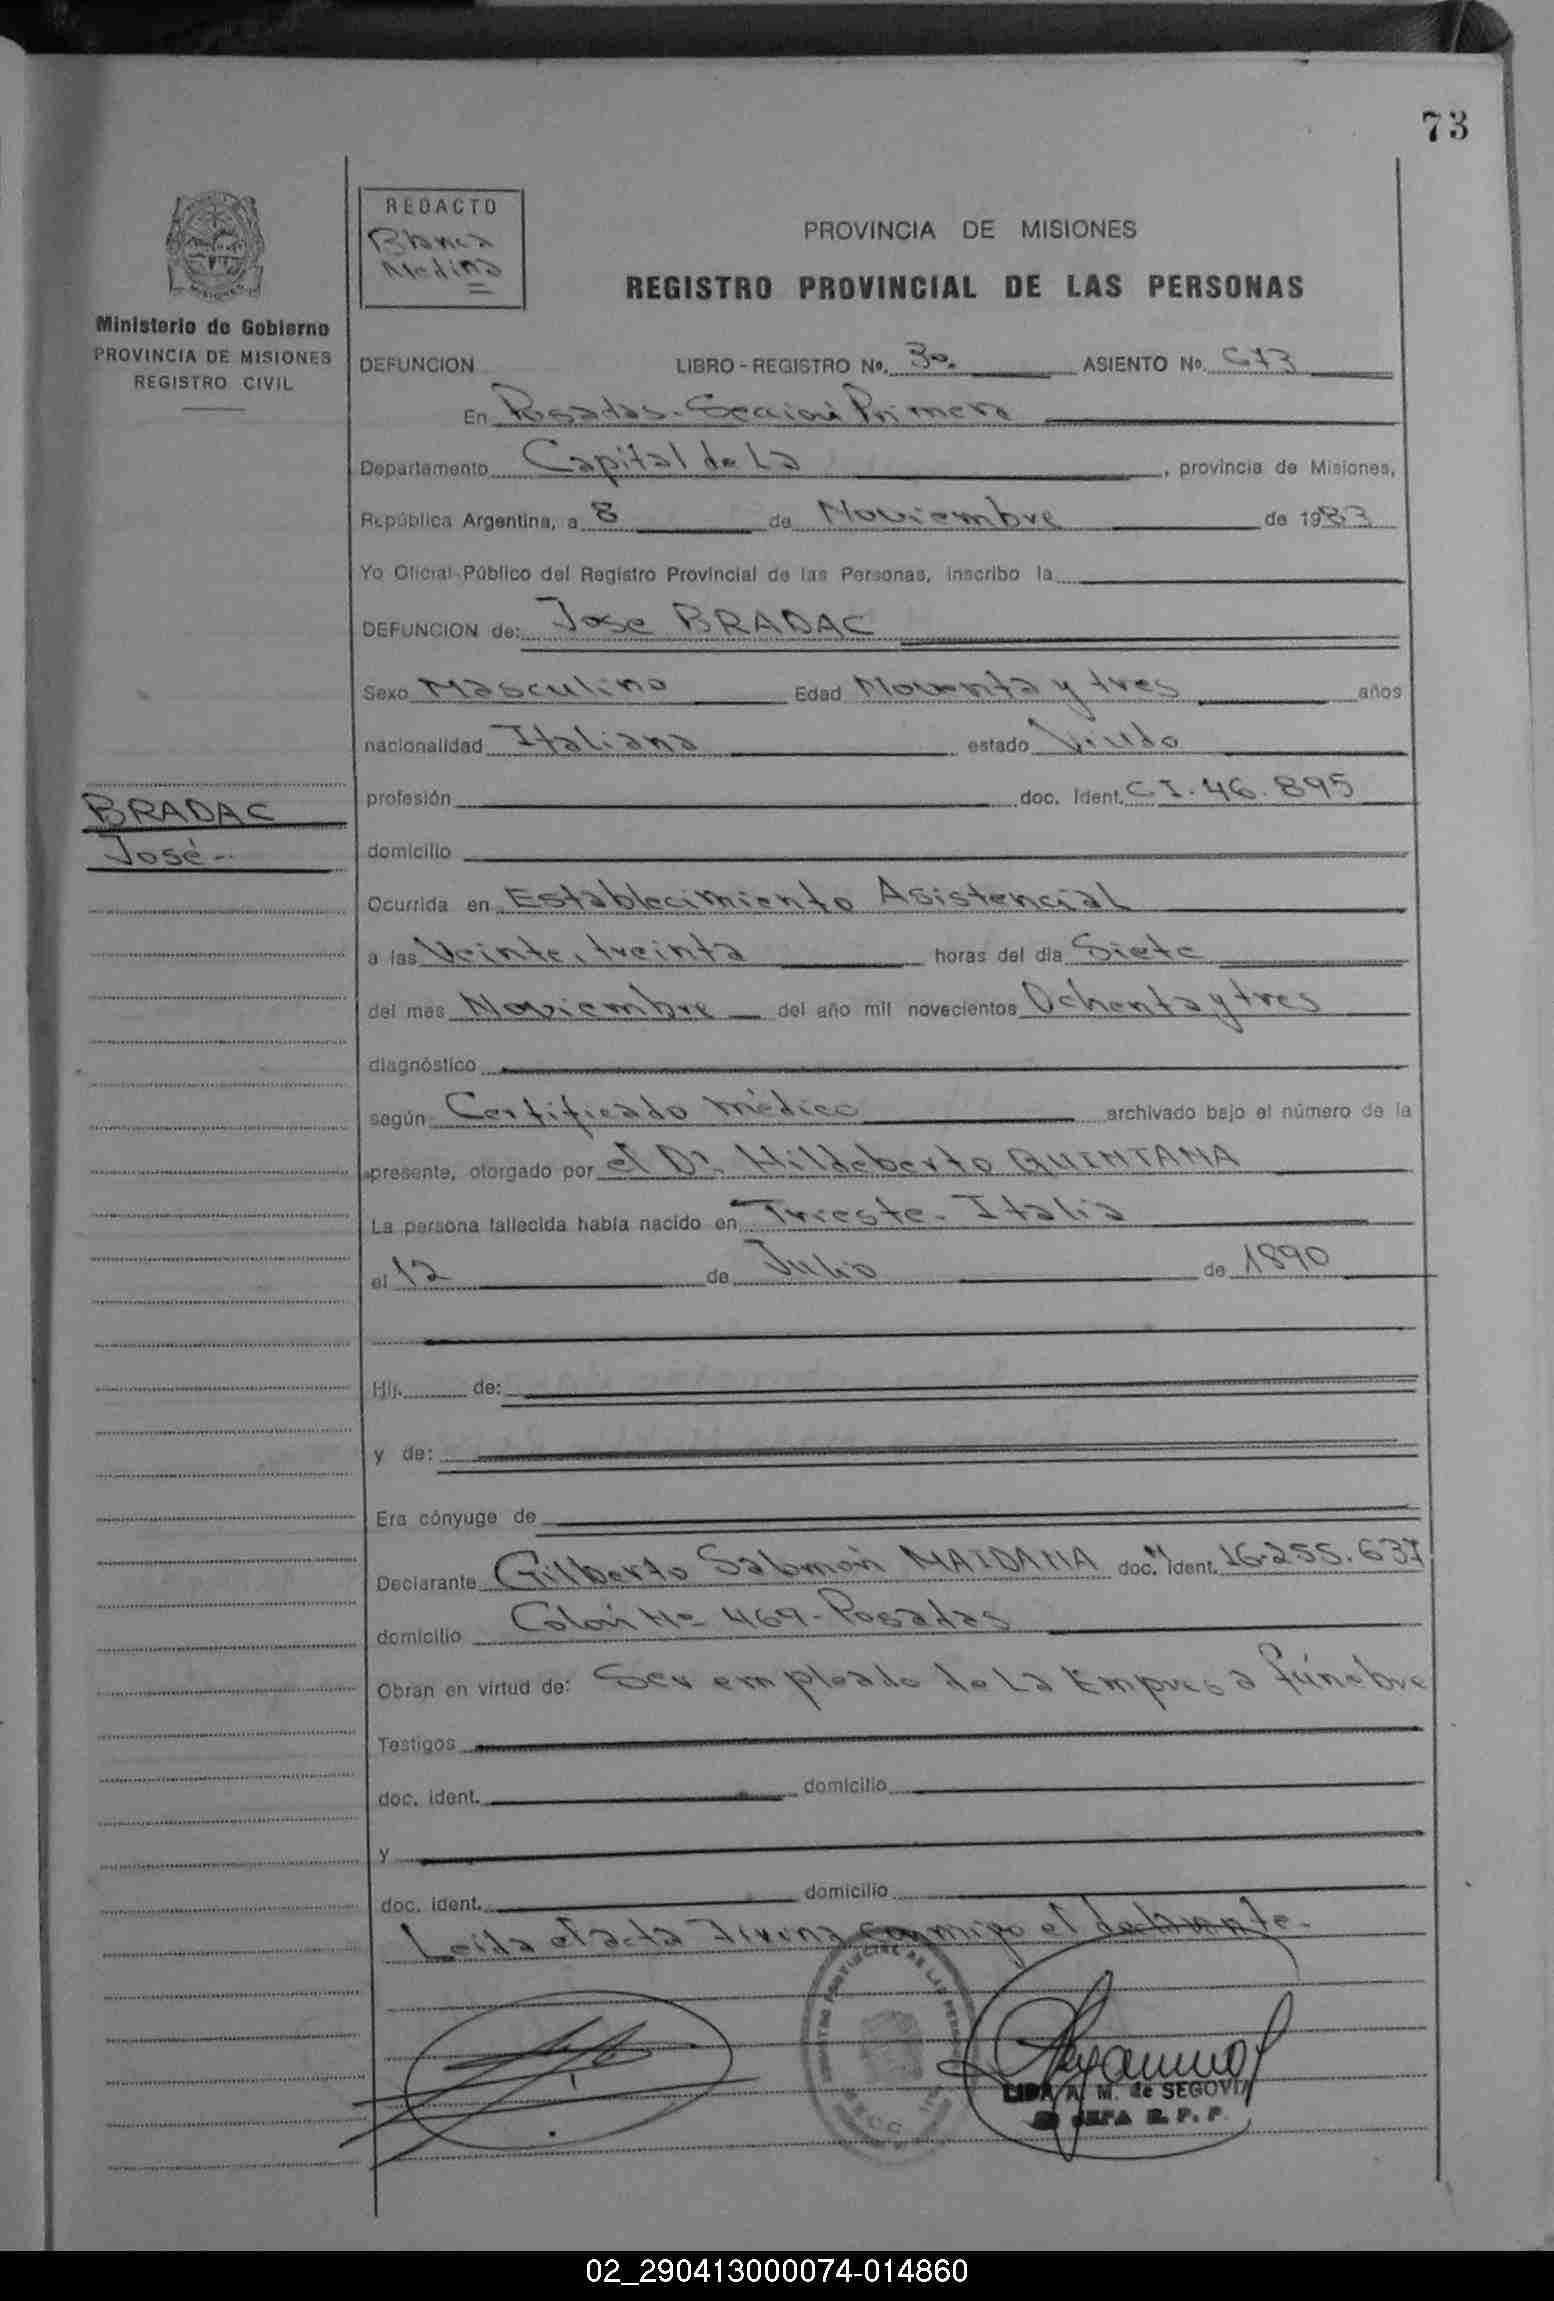 73
REDACTO
Blanca
Medina
PROVINCIA DE MISIONES
REGISTRO PROVINCIAL DE LAS PERSONAS
Ministerio de Gobierno
PROVINCIA DE MISIONES
REGISTRO CIVIL
DEFUNCION LIBRO - REGISTRO No. 3o. ASIENTO No. 673
En Posadas - Sección Primera
Departamento Capital de La , provincia de Misiones,
República Argentina, a 8 de Noviembre de 1983
Yo Oficial Público del Registro Provincial de las Personas, inscribo la
DEFUNCION de: Jose BRADAC
Sexo Masculino Edad Noventa y tres años
nacionalidad Italiana estado Viudo
BRADAC
José -
profesión doc. Ident. C I. 46.895
domicilio
Ocurrida en Establecimiento Asistencial
a las Veinte, treinta horas del día Siete
del mes Noviembre del año mil novecientos Ochenta y tres
diagnóstico
según Certificado médico archivado bajo el número de la
presente, otorgado por el Dr. Hildeberto QUINTANA
La persona fallecida había nacido en Trieste - Italia
el 12 de Julio de 1890
Hij. de:
y de:
Era cónyuge de
Declarante Gilberto Salomón MAIDANA doc. Ident. 16.255.637
domicilio Colón No 469 - Posadas
Obran en virtud de: Ser empleado de La Empresa fúnebre
Testigos
doc. ident. domicilio
y
doc. ident. domicilio
Leida el acta firma conmigo el declarante.
LIDA A. M. de SEGOVIA
JEFA R. P. P.
02_290413000074-014860